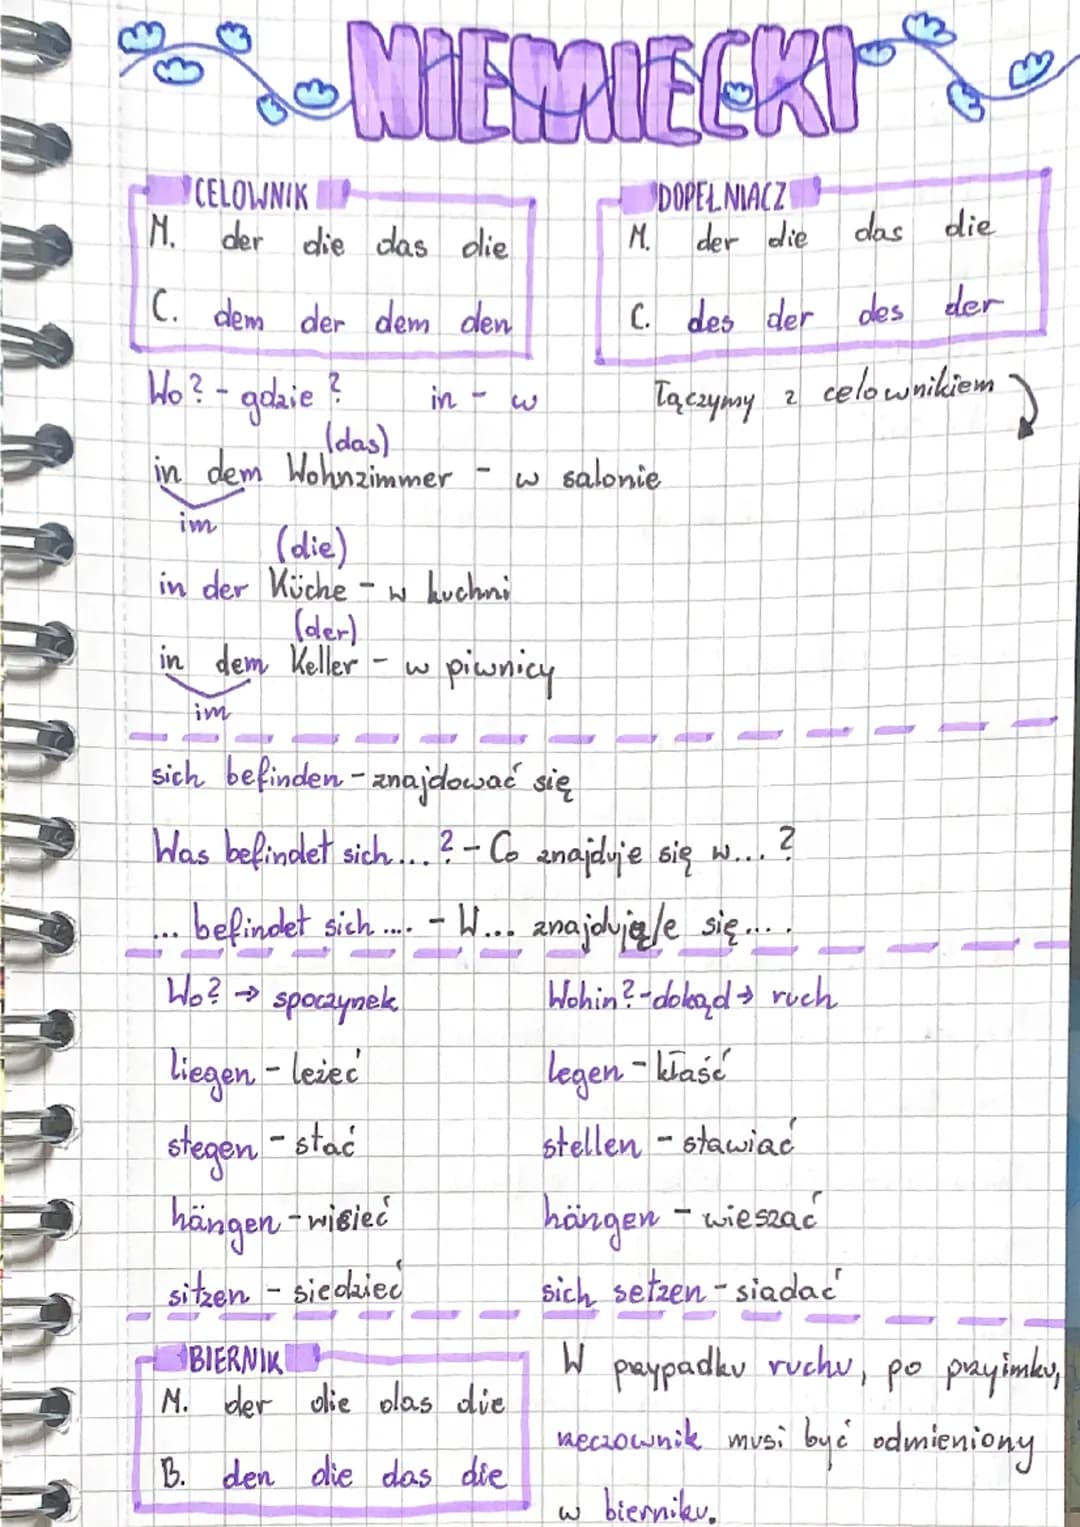 NIEMIECKI
CELOWNIK
M. der die das die
C. dem der dem den
DOPEŁNIACZ
M. der die das die
C. des der des der
Wo? - gdzie? in - w
Łączymy z celownikiem
(das)
in dem Wohnzimmer - w salonie
im
(die)
in der Küche - w kuchni
(der)
in dem Keller - w piwnicy
im
sich befinden - znajdować się
Was befindet sich...? - Co znajduje się w...?
... befindet sich.... - W... znajdują/e się....
Wo? → spoczynek
Wohin? - dokąd → ruch
liegen - leżeć
legen - kłaść
stegen - stać
stellen - stawiać
hängen - wisieć
hängen - wieszać
sitzen - siedzieć
sich setzen - siadać
BIERNIK
M. der die das die
B. den die das die
W przypadku ruchu, po przyimku,
rzeczownik musi być odmieniony
w bierniku.